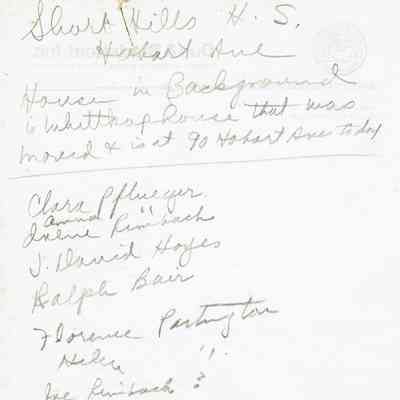 Short Hills H. S.
Hobart Ave
House in Background
is Whittnop house that was
moved & is at 90 Hobart Ave today
Clara Pflueger
Anna "
Irene Rimback
J. David Hoyes
Ralph Bair
Florence Partington
Helen ".
Joe Rimback ?